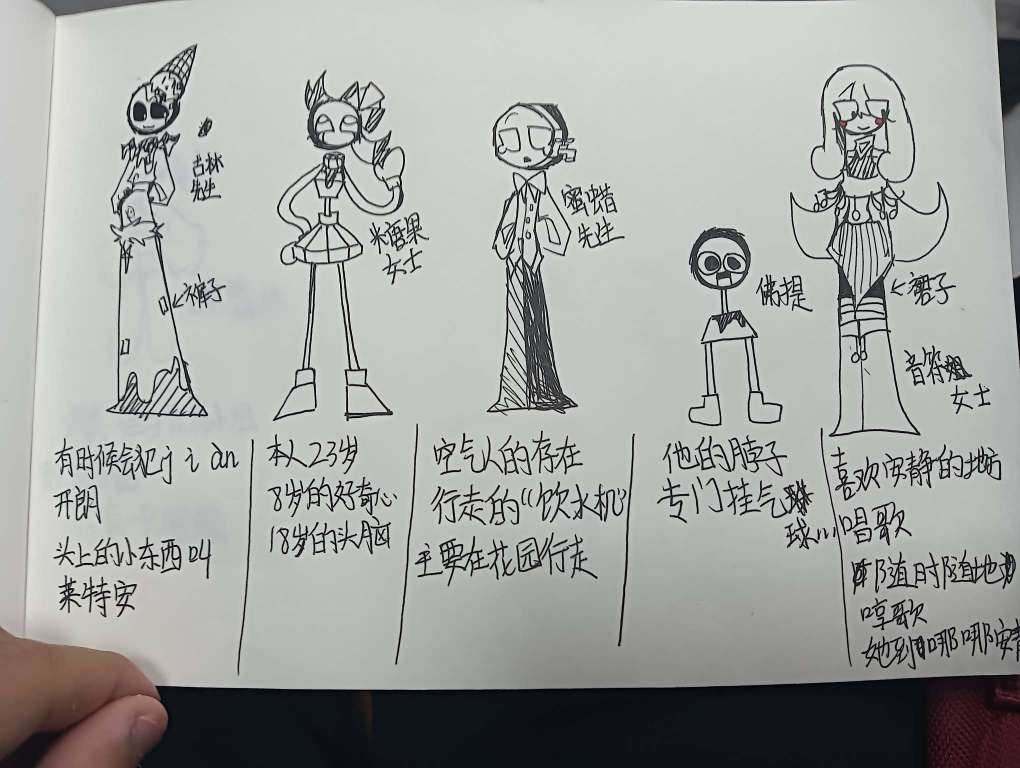 古林
先生
←裤子
米唐果
女士
蜜蜡
先生
佛提
←裙子
音符
女士
有时候会犯j i àn
开朗
头上的小东西叫
莱特安
本人23岁
8岁的好奇心
18岁的头脑
空气人的存在
行走的“饮水机”
主要在花园行走
他的脖子
专门挂气
球...
喜欢安静的地方
唱歌
随时随地
哼歌
她到哪哪安静